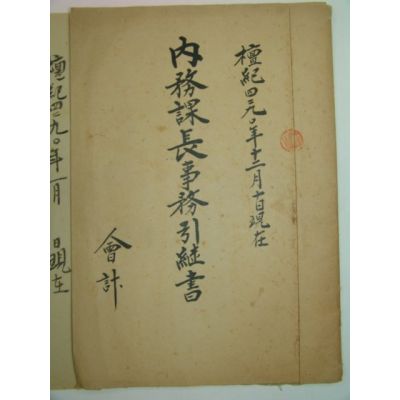 檀紀四二九〇年十二月十日現在
內務課長事務引継書
會計
檀紀四二九〇年一月 日現在